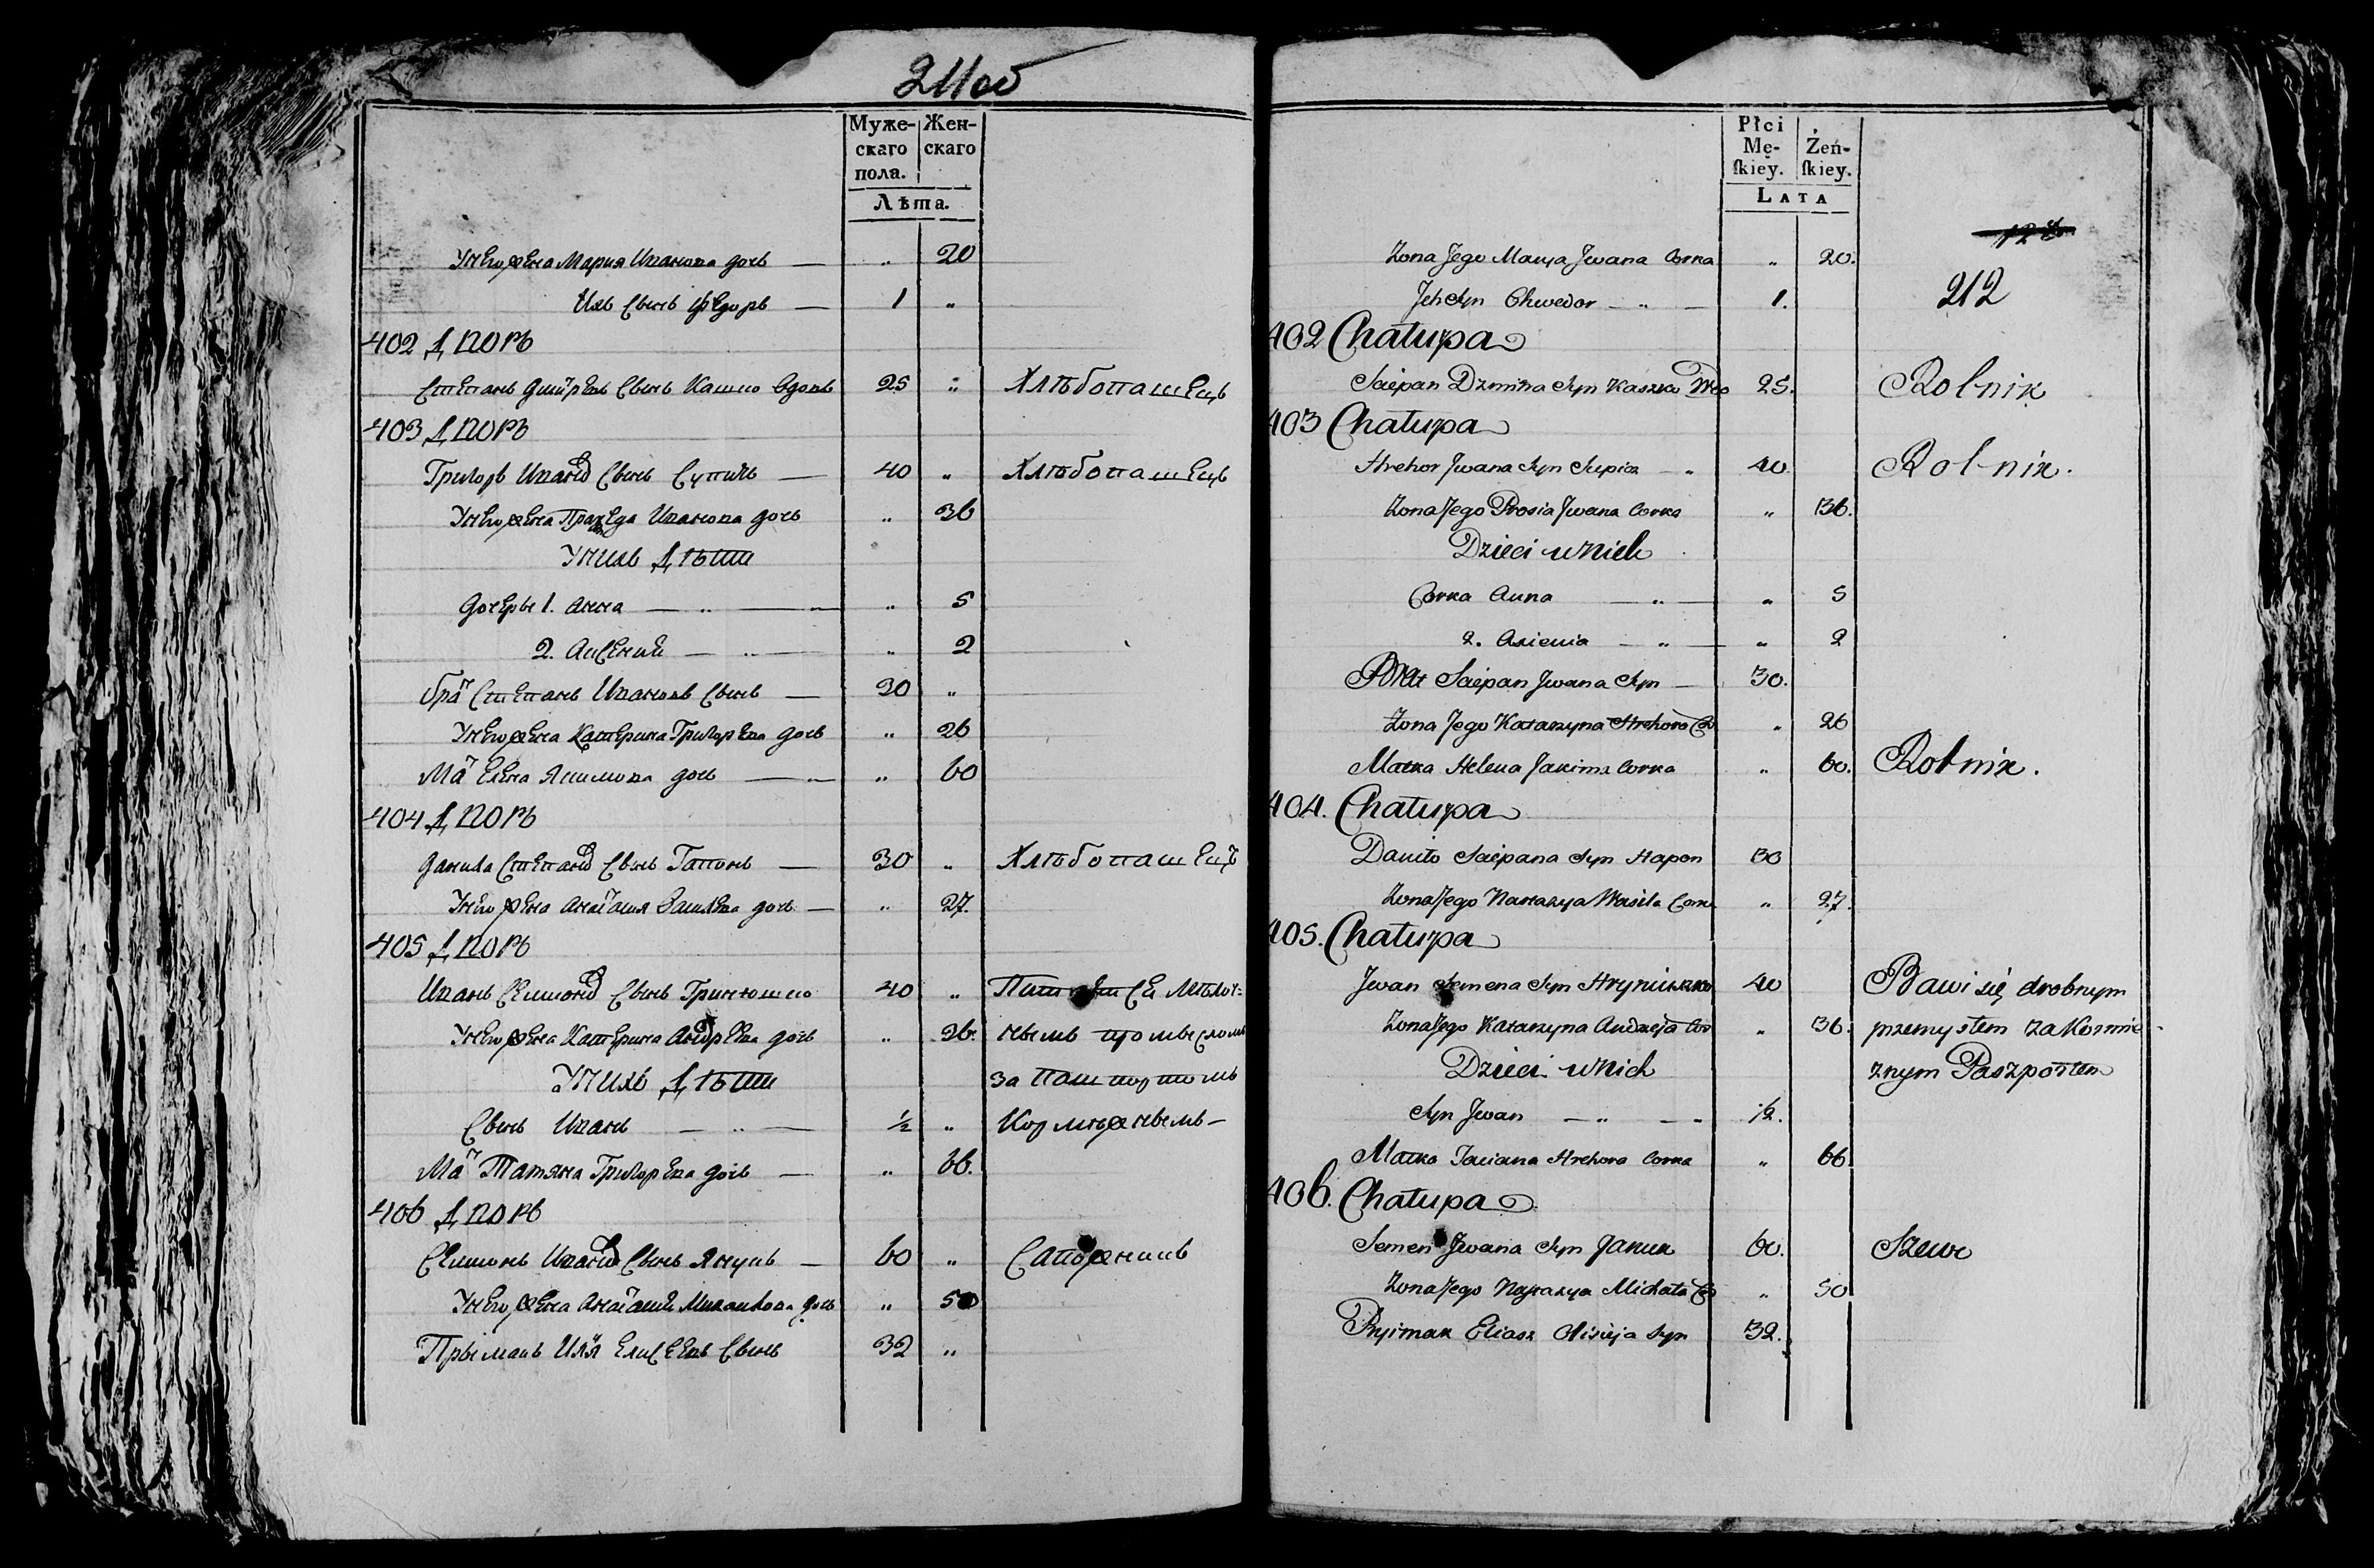 211об
Муже-
скаго
пола.
Жен-
скаго
Лѣта.
У него жена Мария Иванова дочь — „ 20
Ихъ сынъ Федоръ — 1 „
402 Дворъ
Степанъ Дмитревъ сынъ Кашко вдовъ 25 „ Хлѣбопашецъ
403 Дворъ
Григоръ Иванов сынъ Супикъ — 40 „ Хлѣбопашецъ
У него жена Иванова дочь „ 36
У нихъ дѣти
Дочери 1. Анна — „ — „ 5
2. Аксения — „ — „ 2
Брат Степанъ Ивановъ сынъ — 30 „
У него жена Катерина Григорева дочь „ 26
Мат Елена Якимова дочь — „ 60
404 Дворъ
Данила Степанов сынъ Гапонъ — 30 „ Хлѣбопашецъ
У него жена Анастасия Василева дочь — „ 27.
405 Дворъ
Иванъ Семионов сынъ Гринюшко 40 „ Питается мелоч=
У него жена Катерина Андрева дочь „ 36. нымъ промысломъ
У нихъ дѣти за пашпортомъ
Сынъ Иванъ — „ — ½ „ Кормежнымъ —
Мат Татяна Григорева дочь — „ 66.
406 Дворъ
Семионъ Иванов сынъ Янукъ — 60 „ Сапожникъ
У него жена Анастасия Михайлова дочь „ 50
Прымакъ Илья Елисеевъ сынъ 32 „
Płci
Mę-
ſkiey.
Żeń-
ſkiey.
Lata
212
Zona Jego Marya Jwana Corka „ 20.
Jch Syn Chwedor — „ — 1.
402 Chałupa
Sciepan Dzmitra Syn Kaszko 25. Rolnik
403 Chałupa
Hrehor Jwana Syn Supick — „ 40. Rolnik.
Zona Jego Prosia Jwana Corka „ 36.
Dzieci u Nich
Corka Anna — „ — „ 5
2. Axienia — „ — „ 2
Brat Sciepan Jwana Syn — 30.
Zona Jego Katarzyna Hrehora Co „ 26
Matka Helena Jakima Corka „ 60. Rolnik.
404. Chałupa
Daniło Sciepana Syn Hapon 30
Zona Jego Nastazya Wasila Cork „ 27.
405. Chałupa
Jwan Semena Syn Hryniuszko 40 Bawi się drobnym
Zona Jego Katarzyna Andrzeja Cor „ 36. przemysłem za Kormie-
Dzieci u Nich znym Paszportem
Syn Jwan — „ — „ ½.
Matka Taciana Hrehora Corka „ 66.
406. Chałupa
Semen Jwana Syn Januk 60. Szewc
Zona Jego Nastazya Michała Co „ 50
Pryimak Eliasz Olisieja Syn 32.